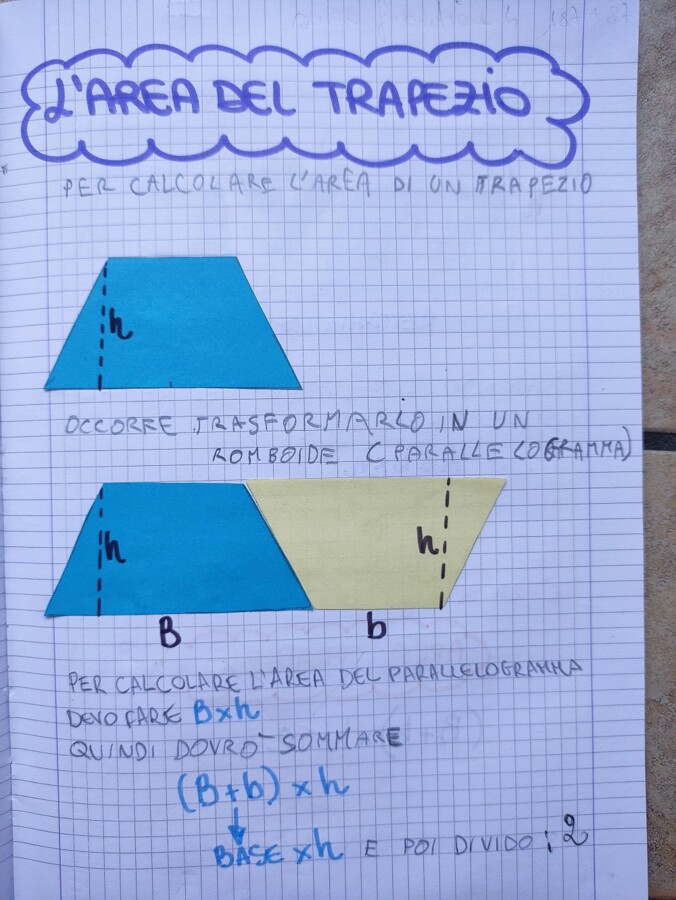 L'AREA DEL TRAPEZIO
PER CALCOLARE L'AREA DI UN TRAPEZIO
h
OCCORRE TRASFORMARLO IN UN
ROMBOIDE (PARALLELOGRAMMA)
h h
B b
PER CALCOLARE L'AREA DEL PARALLELOGRAMMA
DEVO FARE B×h
QUINDI DOVRÒ SOMMARE
(B+b)×h
BASE×h E POI DIVIDO :2